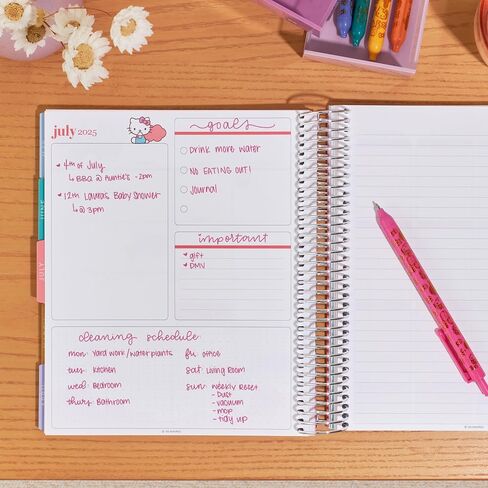 july 2025
♥ 4th of July
↳ BBQ @ Auntie's - 2pm
♥ 12th Laura's Baby Shower
↳ @ 3pm
goals
Drink more water
NO EATING OUT!
Journal
important
♥ gift
♥ DMV
cleaning schedule:
mon: Yard work / water plants
tues: Kitchen
wed: Bedroom
thurs: Bathroom
fri: office
sat: Living Room
sun: weekly reset
- Dust
- vacuum
- mop
- tidy up
JULY